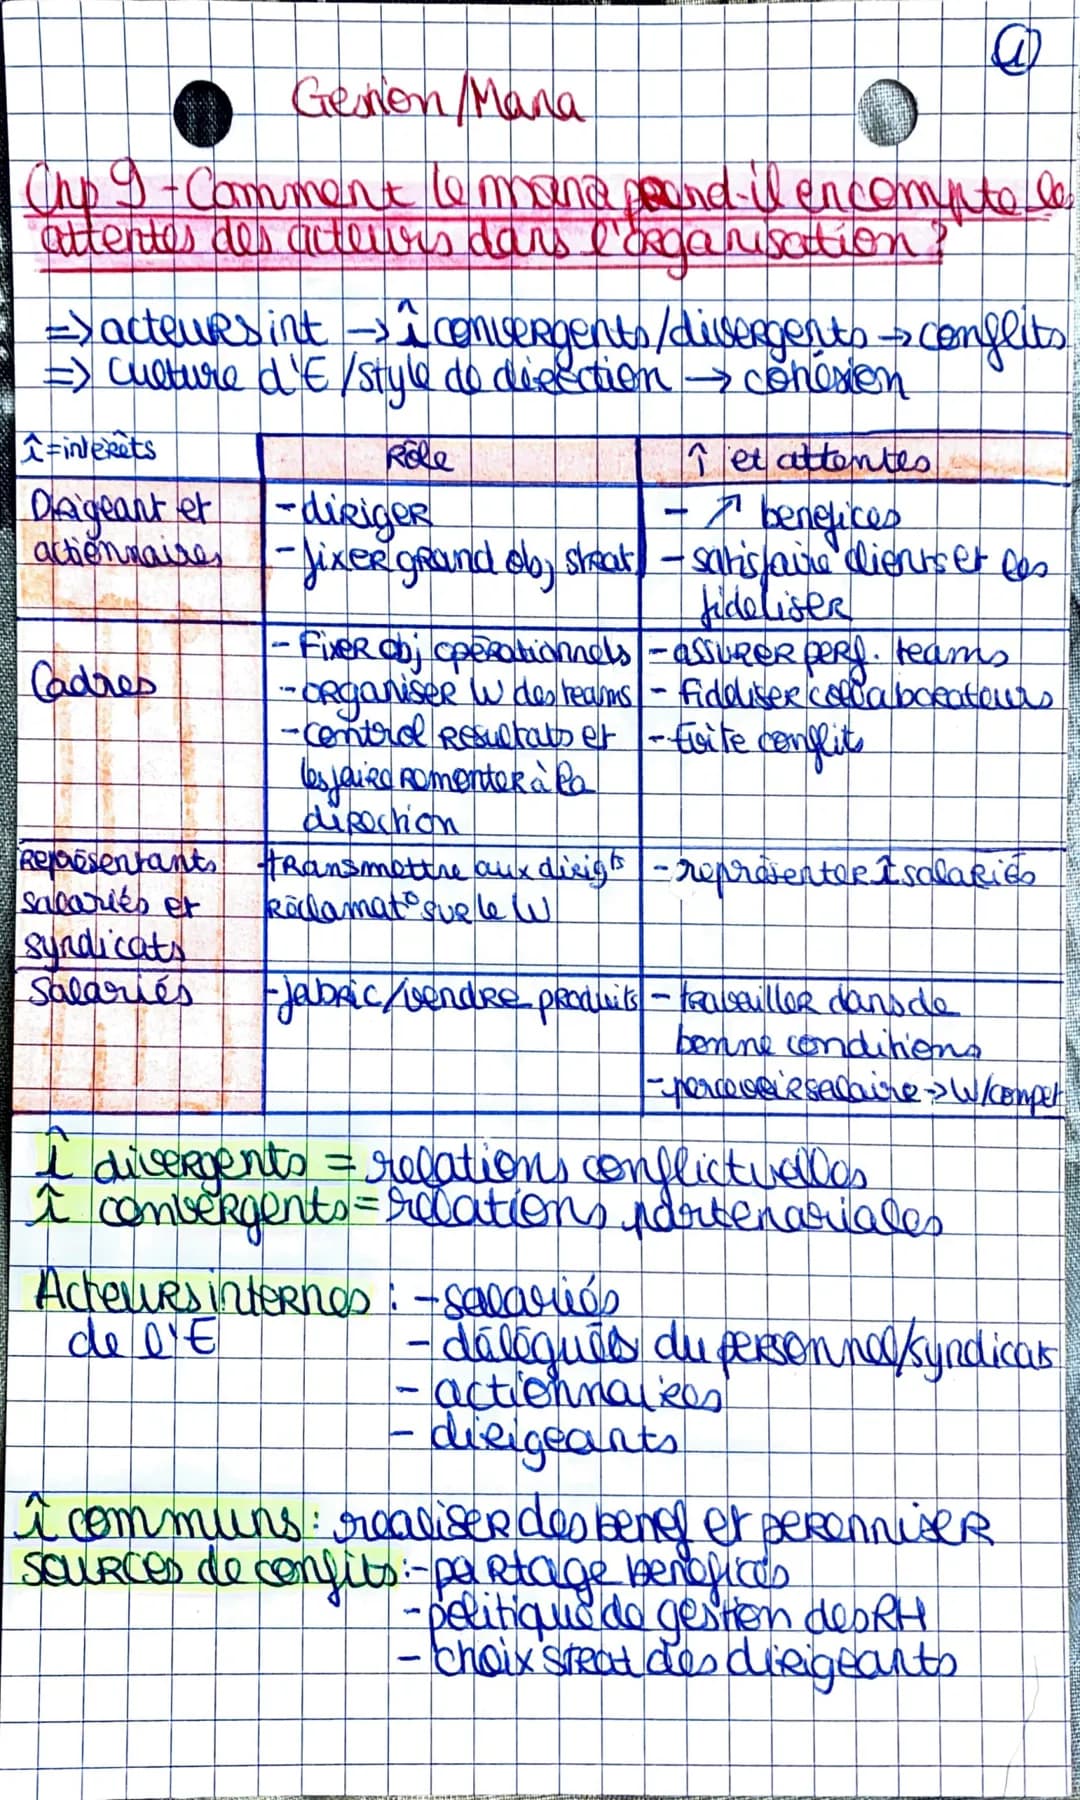 ①
Gestion/Mana
Chp 9 - Comment le mana prend-il en compte les
attentes des acteurs dans l'organisation ?
=> acteurs int → î convergents/divergents → conflits
=> culture d'E / style de direction → cohésion
î = intérêts
Rôle
î et attentes
Dirigeant et
actionnaires
- diriger
- fixer grand obj strat
- ↗ benefices
- satisfaire clients et les
fideliser
Cadres
- Fixer obj opérationnels
- organiser W des teams
- control resultats et
les faire remonter à la
direction
- assurer perf. teams
- fidéliser collaborateurs
- évite conflit
Représentants
salariés et
syndicats
-transmettre aux dirigts
réclamat° sur le W
- représenter î salariés
Salariés
-fabric/vendre produits
- travailler dans de
bonne conditions
- percevoir salaire → W/compet
î divergents = relations conflictuelles
î convergents = relations partenariales
Acteurs internes : - salariés
de l'E
- délégués du personnel/syndicats
- actionnaires
- dirigeants
î communs : réaliser des benef et perenniser
sources de conflits : - partage benefices
- politique de gestion des RH
- choix strat des dirigeants